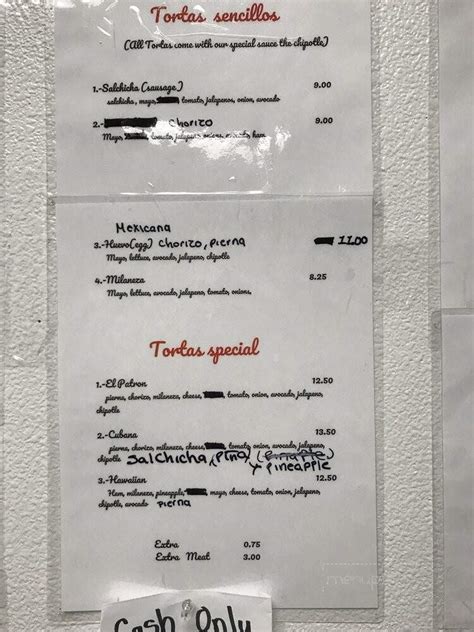 Tortas sencillos
(All Tortas come with our special sauce the chipotle)
1.-Salchicha (sausage) 9.00
salchicha, mayo, tomato, jalapenos, onion, avocado
2.- Chorizo 9.00
Mayo, tomato, jalapeno, onions, avocado, ham
Mexicana
3.-Huevo(egg) chorizo, pierna 11.00
Mayo, lettuce, avocado, jalapeno, chipotle
4.-Milaneza 8.25
Mayo, lettuce, avocado, jalapeno, tomato, onions,
Tortas special
1.-El Patron 12.50
pierna, chorizo, milaneza, cheese, tomato, onion, avocado, jalapeno,
chipotle
2.-Cubana 13.50
pierna, chorizo, milaneza, cheese, tomato, onion, avocado, jalapeno,
chipotle Salchicha, piña
y pineapple
3.-Hawaiian 12.50
Ham, milaneza, pineapple, mayo, cheese, tomato, onion, jalapeno,
chipotle, avocado pierna
Extra 0.75
Extra Meat 3.00
Cash Only